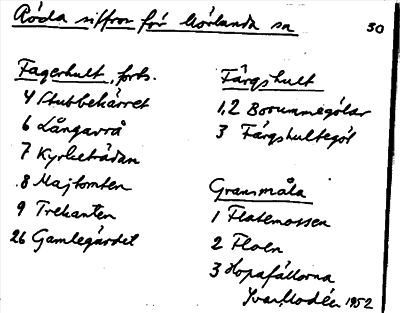 Röda siffror för Mörlunda sn
30
Fagerhult, forts.
4 Stubbekärret
6 Långavrå
7 Kyrketrädan
8 Majtomten
9 Trekanten
26 Gamlegärdet
Färgshult
1,2 Borummegölar
3 Färgshultegöl
Gransmåla
1 Flatemossen
2 Floen
3 Hopafällorna
Ivar Modéer 1952